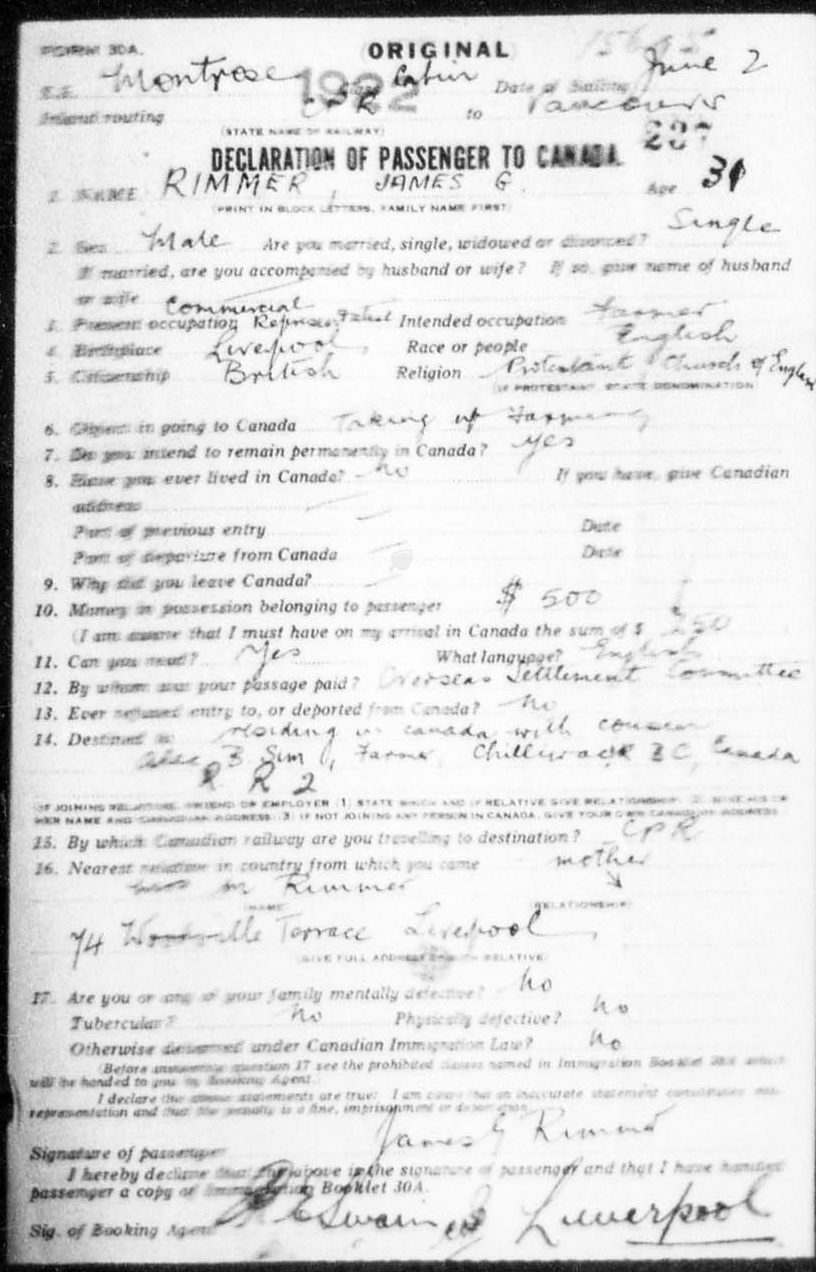 FORM 30A. ORIGINAL 15645
S.S. Montrose Class Cabin Date of Sailing June 2
1922
Inland routing CPR to Vancouver
(STATE NAME OF RAILWAY)
237
DECLARATION OF PASSENGER TO CANADA
1. NAME RIMMER, JAMES G. Age 31
(PRINT IN BLOCK LETTERS, FAMILY NAME FIRST)
2. Sex Male Are you married, single, widowed or divorced? Single
If married, are you accompanied by husband or wife? If so, give name of husband
or wife
3. Present occupation Commercial Representative Intended occupation Farmer
4. Birthplace Liverpool Race or people English
5. Citizenship British Religion Protestant Church of England
(IF PROTESTANT, STATE DENOMINATION)
6. Object in going to Canada Taking up Farming
7. Do you intend to remain permanently in Canada? Yes
8. Have you ever lived in Canada? No If you have, give Canadian
address
Port of previous entry Date
Port of departure from Canada Date
9. Why did you leave Canada?
10. Money in possession belonging to passenger $ 500
(I am aware that I must have on my arrival in Canada the sum of $ 250
11. Can you read? Yes What language? English
12. By whom was your passage paid? Overseas Settlement Committee
13. Ever refused entry to, or deported from Canada? No
14. Destined to residing in Canada with cousin
Alec B. Sim, Farmer, Chilliwack BC, Canada
R R 2
IF JOINING RELATIVE, FRIEND OR EMPLOYER (1) STATE WHICH AND IF RELATIVE GIVE RELATIONSHIP (2) GIVE HIS OR
HER NAME AND CANADIAN ADDRESS (3) IF NOT JOINING ANY PERSON IN CANADA, GIVE YOUR OWN CANADIAN ADDRESS
15. By which Canadian railway are you travelling to destination? CPR
16. Nearest relation in country from which you came mother
M Rimmer
(NAME) (RELATIONSHIP)
74 Woodville Terrace Liverpool
(GIVE FULL ADDRESS OF SUCH RELATIVE)
17. Are you or any of your family mentally defective? No
Tubercular? No Physically defective? No
Otherwise debarred under Canadian Immigration Law? No
(Before answering question 17 see the prohibited classes named in Immigration Booklet 30A which
will be handed to you by Booking Agent.)
I declare the above statements are true: I am aware that an inaccurate statement constitutes mis-
representation and that the penalty is a fine, imprisonment or deportation.
Signature of passenger James G Rimmer
I hereby declare that the above is the signature of passenger and that I have handed
passenger a copy of Immigration Booklet 30A.
Sig. of Booking Agent Swain Liverpool